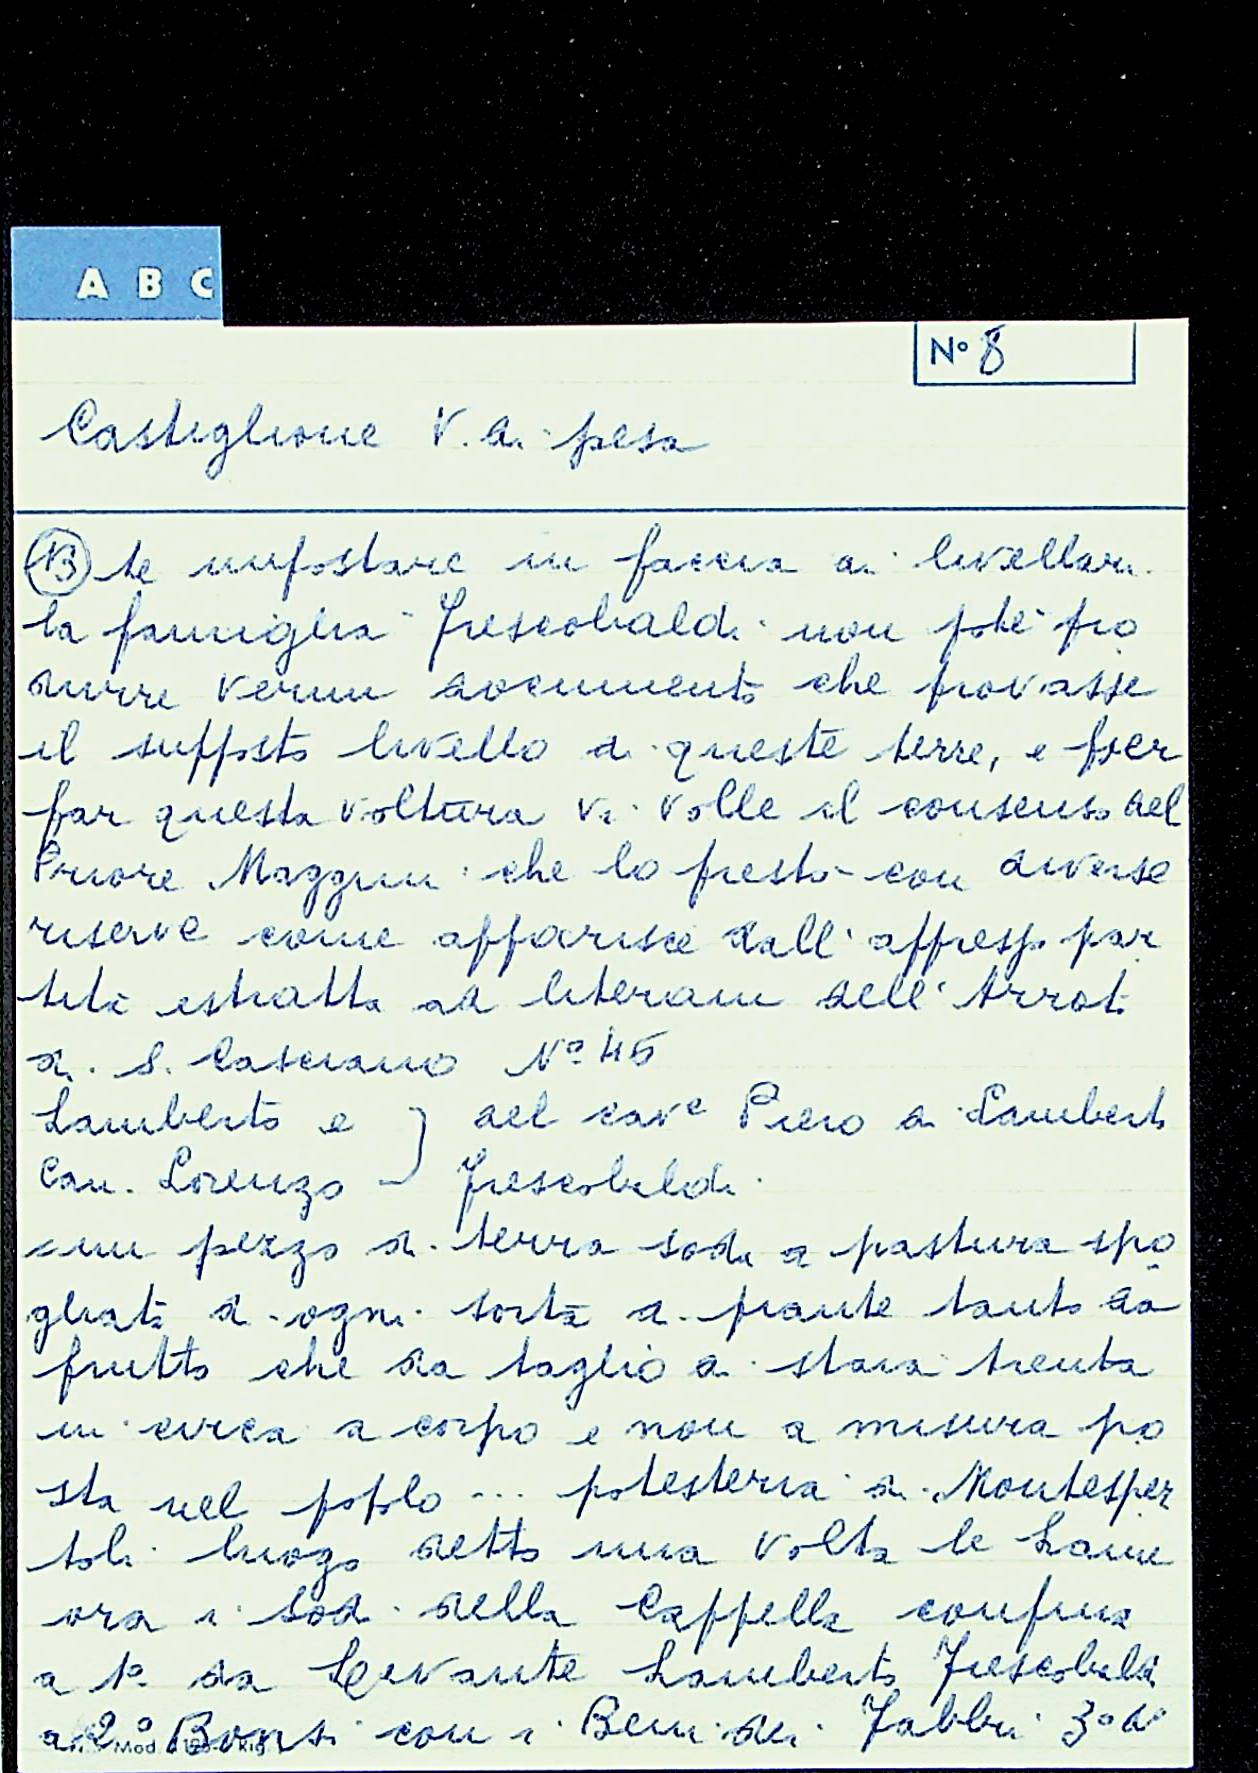 A B C
N° 8
Castiglione V. di pesa
13 te impostare in faccia ai livellari
la famiglia Frescobaldi non poté pro
durre verun documento che provasse
il supposto livello di queste terre, e per
far questa voltura vi volle il consenso del
Priore Mazzini che lo prestò con diverse
riserve come apparisce dall'appresso par
tita estratta ad literam dell'Arroti
di S. Casciano N° 45
Lamberto e } del cav.e Piero di Lamberto
Can. Lorenzo } Frescobaldi
un pezzo di terra soda a pastura spo
gliata di ogni sorta di piante tanto da
frutto che da taglio di staia trenta
in circa a corpo e non a misura po
sta nel popolo ... potesteria di Montesper
toli luogo detto una volta le Lame
ora i sodi della Cappella confina
a 1° da Levante Lamberto Frescobaldi
a 2° con i Beni dei Fabbri 3° a
Mod.